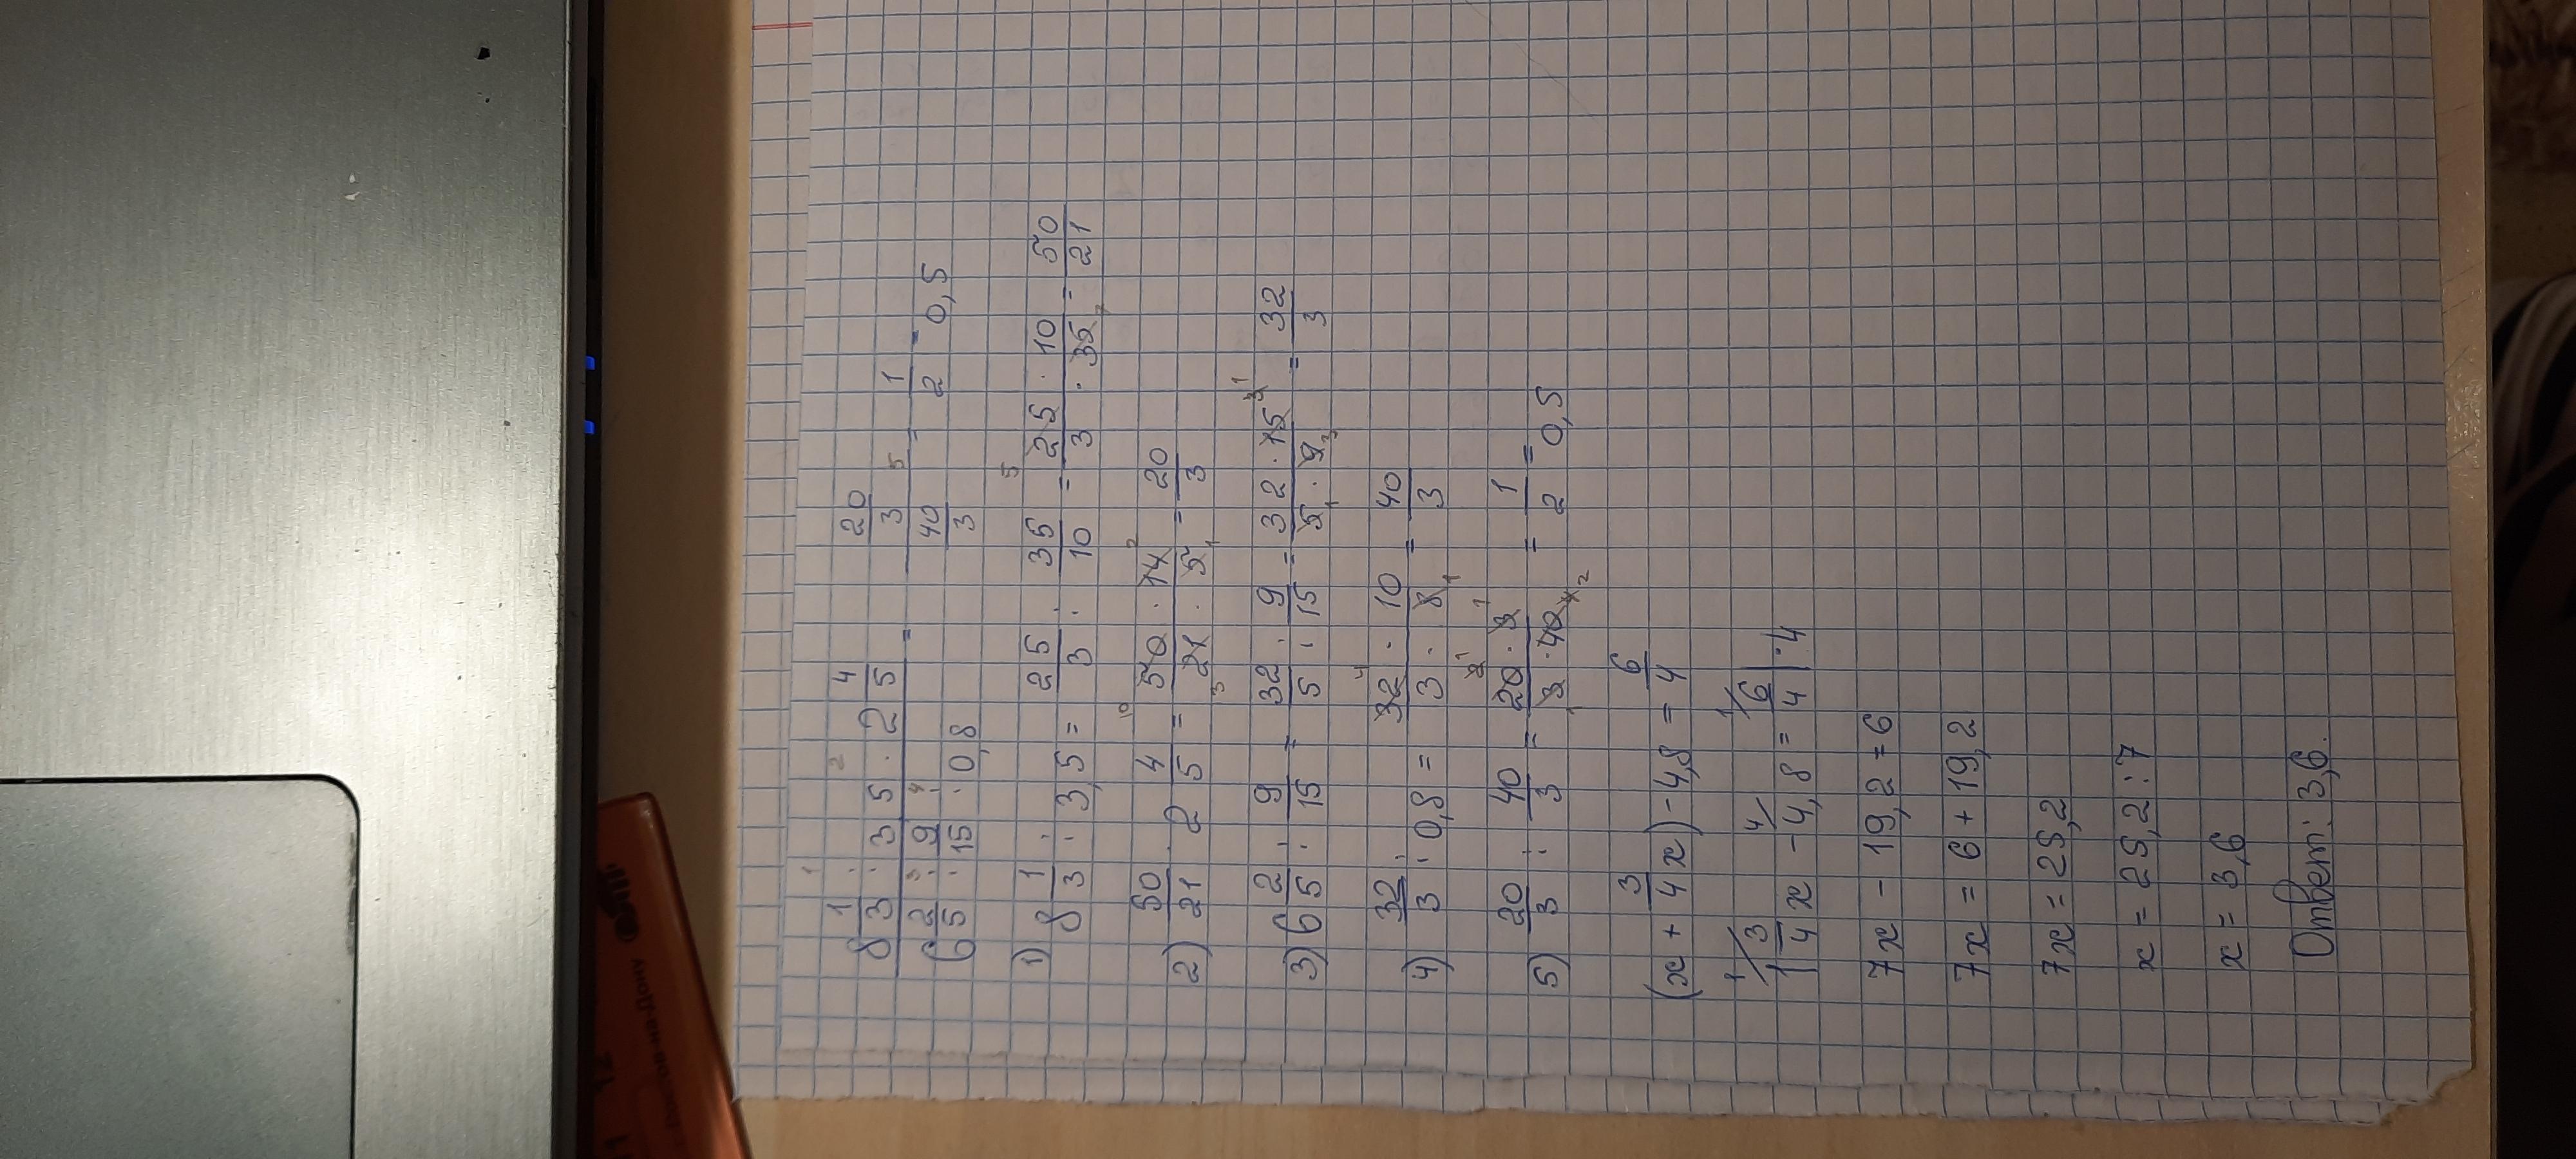 8 1/3 : 3,5 · 2 4/5 / 6 2/5 : 9/15 : 0,8 = 20/3 / 40/3 = 1/2 = 0,5
1) 8 1/3 : 3,5 = 25/3 : 35/10 = 25 · 10 / 3 · 35 = 50/21
2) 50/21 · 2 4/5 = 50 · 14 / 21 · 5 = 20/3
3) 6 2/5 : 9/15 = 32/5 : 9/15 = 32 · 15 / 5 · 9 = 32/3
4) 32/3 : 0,8 = 32 · 10 / 3 · 8 = 40/3
5) 20/3 : 40/3 = 20 · 3 / 3 · 40 = 1/2 = 0,5
(x + 3/4 x) - 4,8 = 6/4
1 3/4 x - 4,8 = 6/4 | · 4
7x - 19,2 = 6
7x = 6 + 19,2
7x = 25,2
x = 25,2 : 7
x = 3,6
Ответ: 3,6.